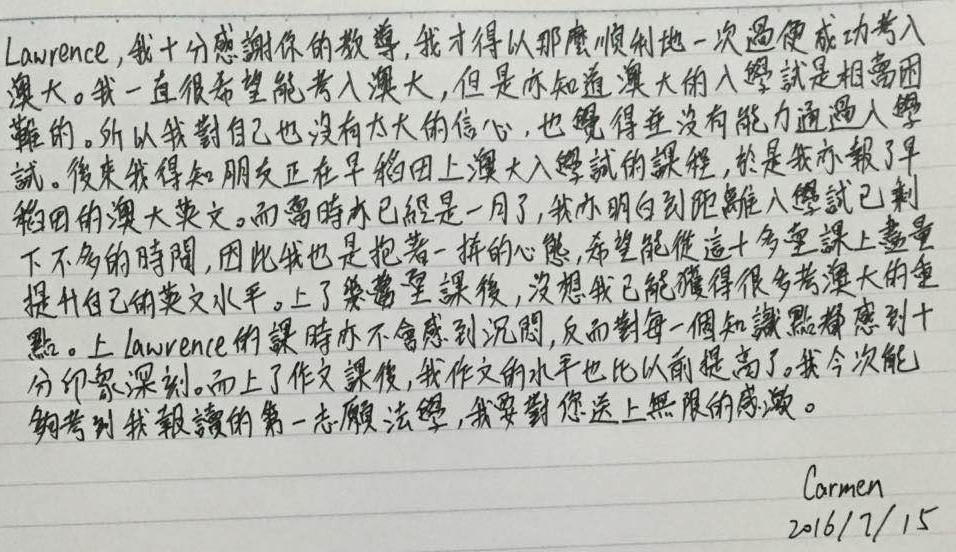 Lawrence,我十分感謝你的教導,我才得以那麼順利地一次過便成功考入
澳大。我一直很希望能考入澳大,但是亦知道澳大的入學試是相當困
難的。所以我對自己也沒有太大的信心,也覺得並沒有能力通過入學
試。後來我得知朋友正在早稻田上澳大入學試的課程,於是我亦報了早
稻田的澳大英文。而當時亦已經是一月了,我亦明白到距離入學試已剩
下不多的時間,因此我也是抱着一拼的心態,希望能從這十多堂課上盡量
提升自己的英文水平。上了幾堂課後,沒想我已能獲得很多考澳大的重
點。上Lawrence的課時亦不會感到沉悶,反而對每一個知識點都感到十
分印象深刻。而上了作文課後,我作文的水平也比以前提高了。我今次能
夠考到我報讀的第一志願法學,我要對您送上無限的感激。
Carmen
2016/7/15